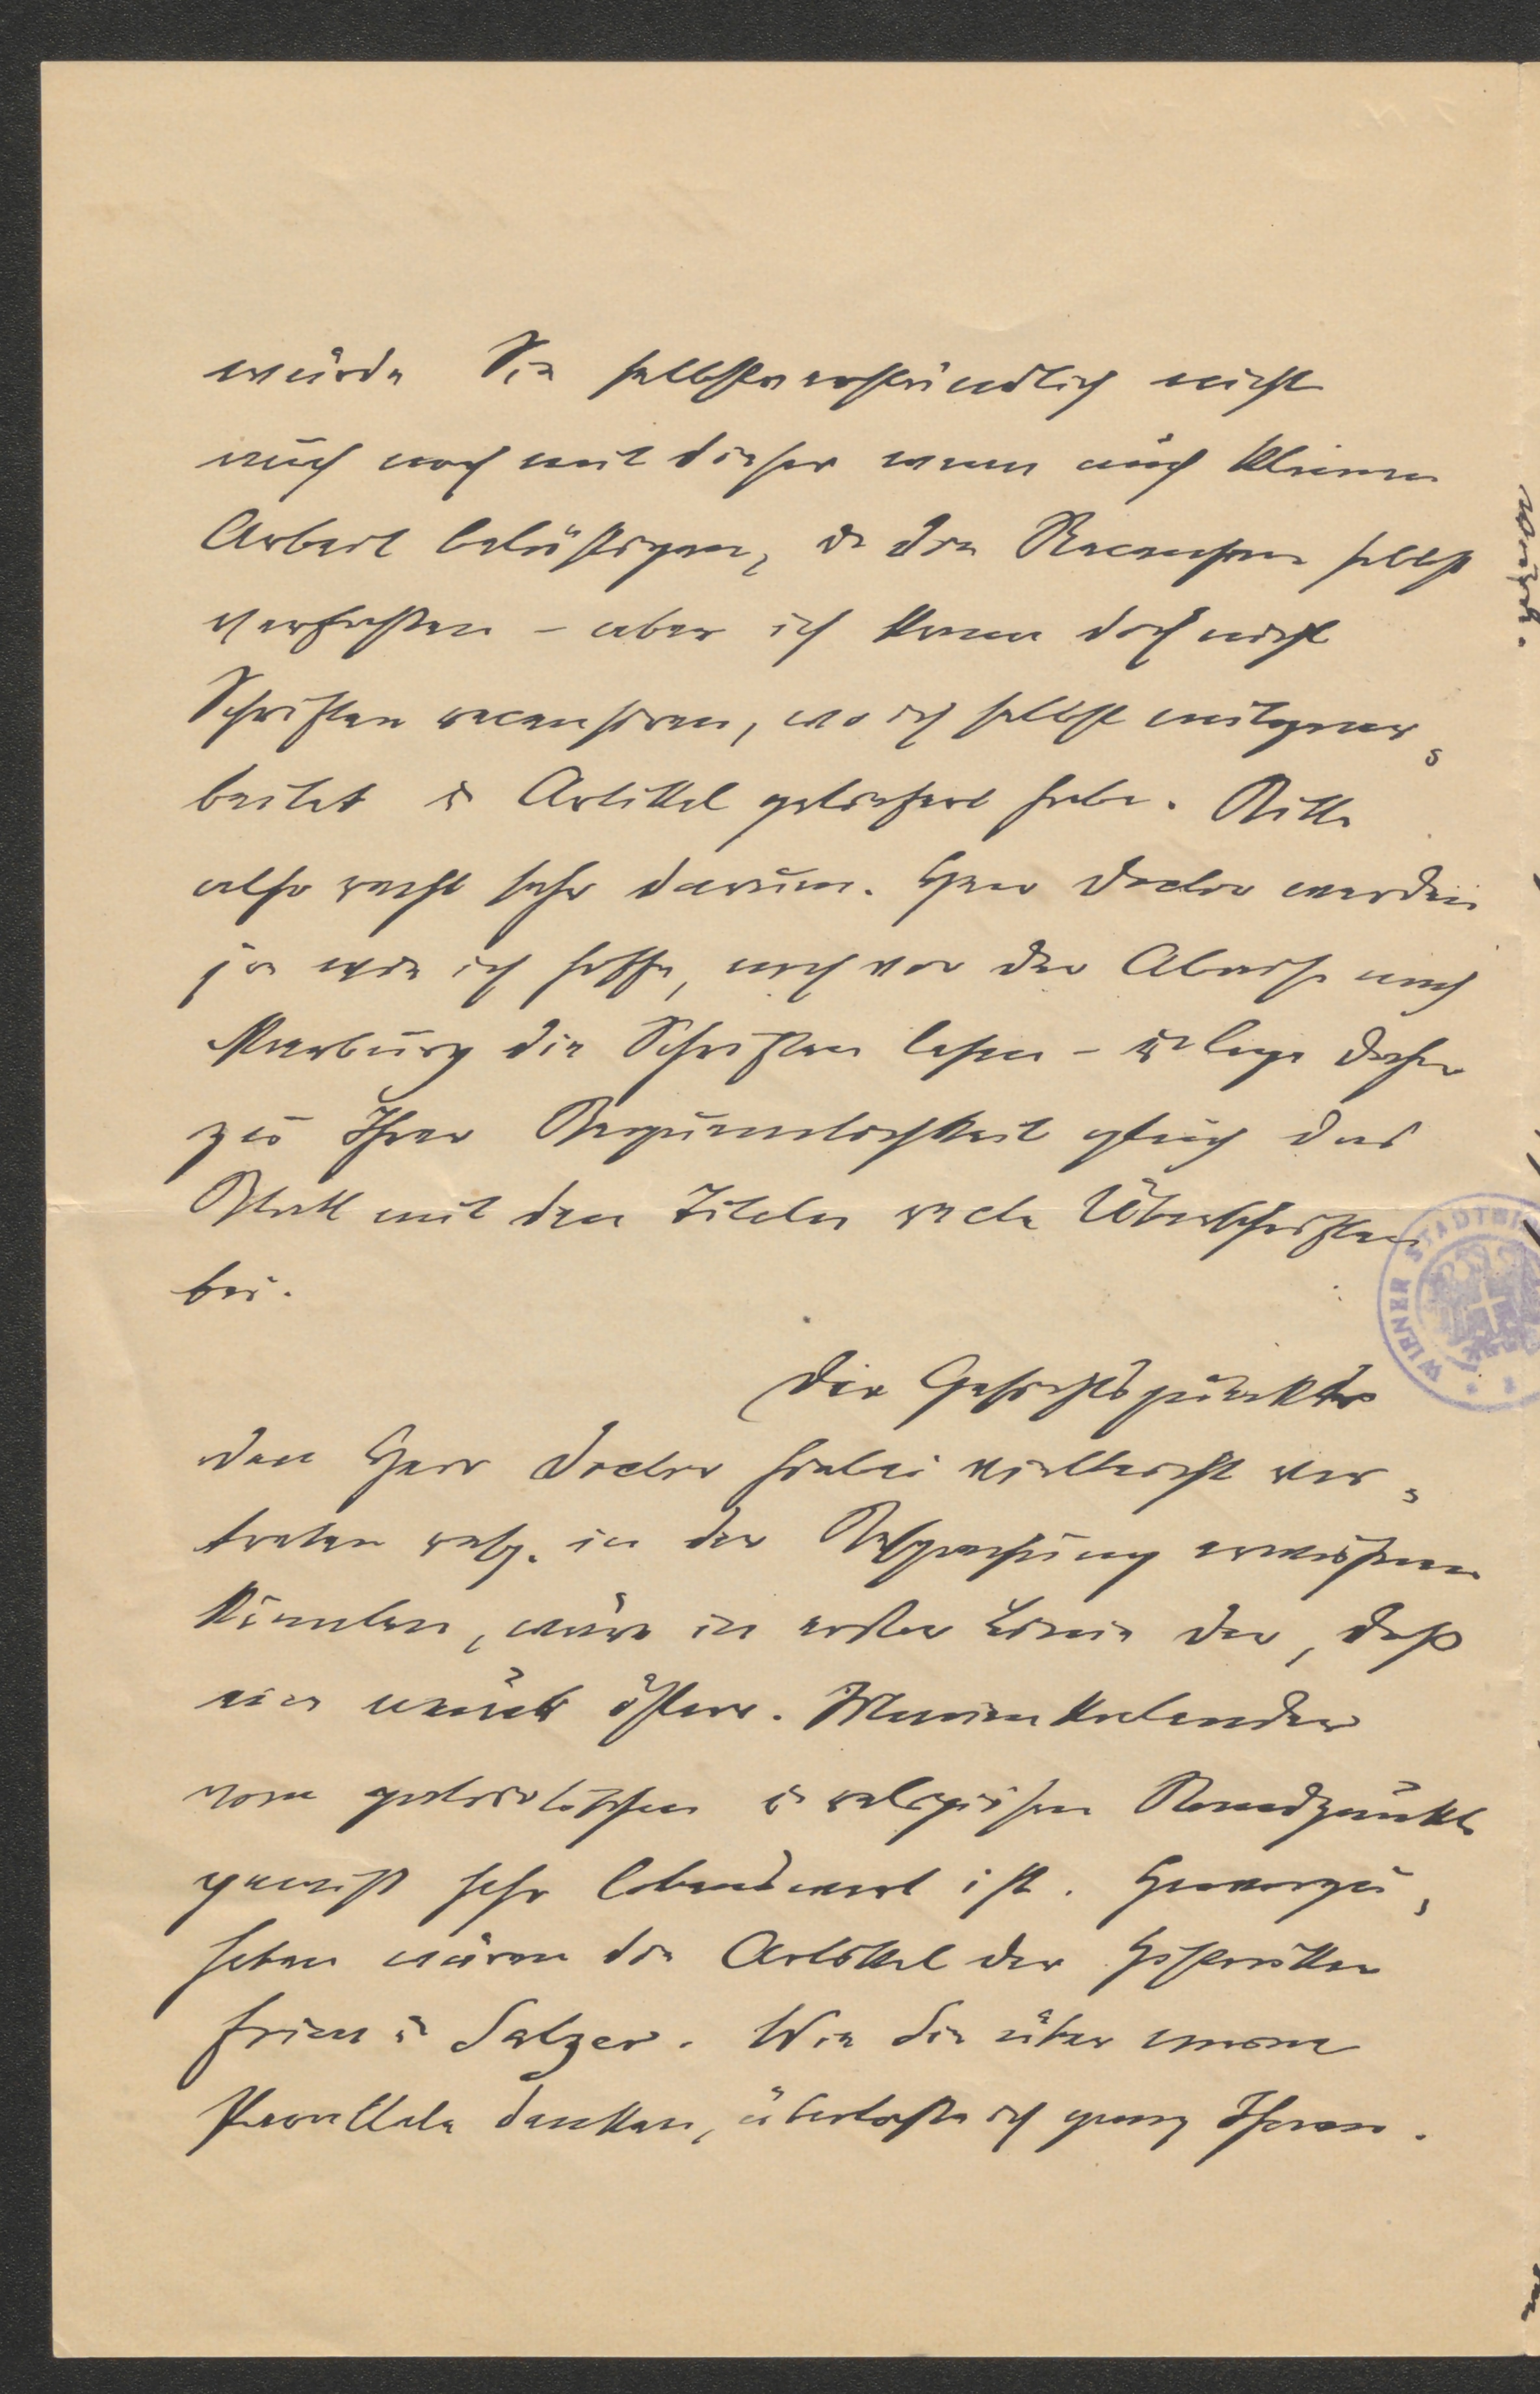 würde Sie selbstverständlich nicht
auch noch mit dieser wenn auch kleinen
Arbeit belästigen, u die Recension selbst
verfassen – aber ich kann doch nicht
Schriften recensiren, wo ich selbst mitgear-
beitet u Artikel geliefert habe. Bitte
also recht sehr darum. Herr Doctor werden
ja wie ich hoffe, noch vor der Abreise nach
Marburg die Schriften lesen – u lege daher
zu Ihrer Bequemlichkeit gleich das
Blatt mit den Titeln recte Überschriften
bei.
Der Gesichtspunkt
den Herr Doctor hiebei vielleicht ver-
treten resp. in der Besprechung erweisen
könnten, wäre in erster Linie der, daß
ein österr. Marienkalender
vom patriotischen u religiösen Standpunkt
gewiß sehr lobenswert ist. Hervorzu-
heben wären die Artikel der Historiker
Frieß u Salzer. Wie Sie über meine
Artikel denken, überlasse ich ganz Ihnen.
WIENER STADTBI